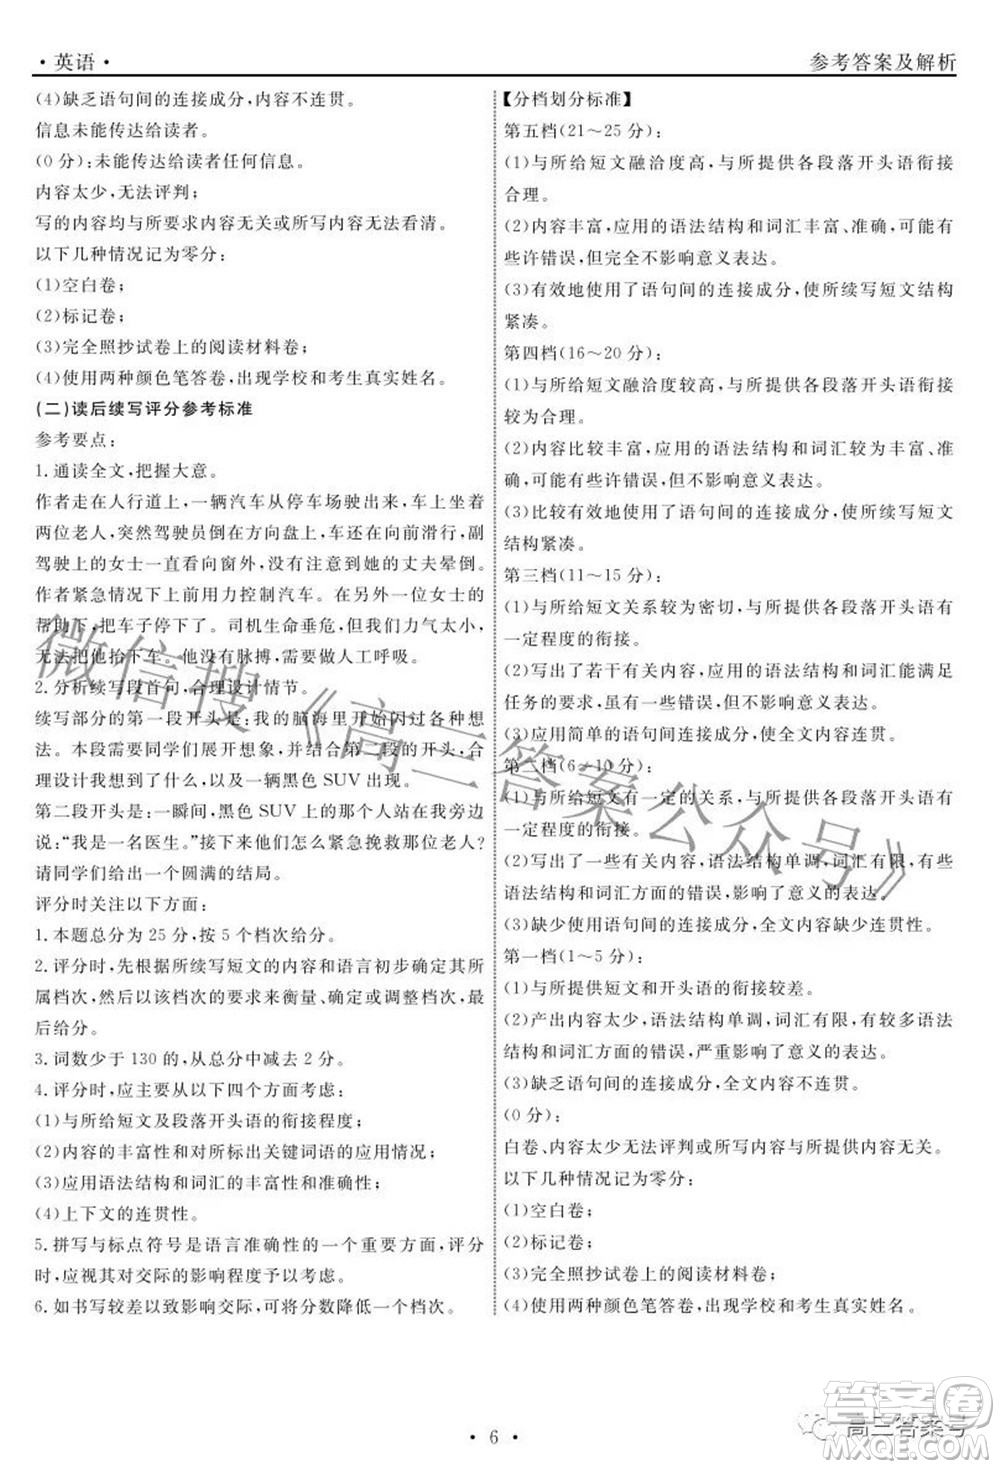 ·英语·
参考答案及解析
(4)缺乏语句间的连接成分,内容不连贯。
信息未能传达给读者。
(0 分):未能传达给读者任何信息。
内容太少,无法评判;
写的内容均与所要求内容无关或所写内容无法看清。
以下几种情况记为零分:
(1)空白卷;
(2)标记卷;
(3)完全照抄试卷上的阅读材料卷;
(4)使用两种颜色笔答卷,出现学校和考生真实姓名。
(二)读后续写评分参考标准
参考要点:
1. 通读全文,把握大意。
作者走在人行道上,一辆汽车从停车场驶出来,车上坐着
两位老人,突然驾驶员倒在方向盘上,车还在向前滑行,副
驾驶上的女士一直看向窗外,没注意到她的丈夫晕倒。
作者紧急情况下上前用力控制汽车。在一位女士的
帮助下,把车子停下了。司机生命垂危,但我们力气太小,
无法把他抬下车。他没有脉搏,需要做人工呼吸。
2. 分析续写段首句,合理设计情节。
续写部分的第一段开头是:我的脑海里开始闪过各种想
法。本段需要同学们展开想象,并结合第二段的开头,合
理设计我想到了什么,以及一辆黑色 SUV 出现。
第二段开头是:一瞬间,黑色 SUV 上的那个人站在我旁边
说:“我是一名医生。”接下来他们怎么紧急挽救那位老人?
请同学们给出一个圆满的结局。
评分时关注以下方面:
1. 本题总分为 25 分,按 5 个档次给分。
2. 评分时,先根据所续写短文的内容和语言初步确定其所
属档次,然后以该档次的要求来衡量、确定或调整档次,最
后给分。
3. 词数少于 130 的,从总分中减去 2 分。
4. 评分时,应主要从以下四个方面考虑:
(1)与所给短文及段落开头语的衔接程度;
(2)内容的丰富性和对所标出关键词语的应用情况;
(3)应用语法结构和词汇的丰富性和准确性;
(4)上下文的连贯性。
5. 拼写与标点符号是语言准确性的一个重要方面,评分
时,应视其对交际的影响程度予以考虑。
6. 如书写较差以致影响交际,可将分数降低一个档次。
【分档划分标准】
第五档(21～25 分):
(1)与所给短文融洽度高,与所提供各段落开头语衔接
合理。
(2)内容丰富,应用的语法结构和词汇丰富、准确,可能有
些许错误,但完全不影响意义表达。
(3)有效地使用了语句间的连接成分,使所续写短文结构
紧凑。
第四档(16～20 分):
(1)与所给短文融洽度较高,与所提供各段落开头语衔接
较为合理。
(2)内容比较丰富,应用的语法结构和词汇较为丰富、准
确,可能有些许错误,但不影响意义表达。
(3)比较有效地使用了语句间的连接成分,使所续写短文
结构紧凑。
第三档(11～15 分):
(1)与所给短文关系较为密切,与所提供各段落开头语有
一定程度的衔接。
(2)写出了若干有关内容,应用的语法结构和词汇能满足
任务的要求,虽有一些错误,但不影响意义表达。
(3)应用简单的语句间连接成分,使全文内容连贯。
第二档(6～10 分):
(1)与所给短文有一定的关系,与所提供各段落开头语有
一定程度的衔接。
(2)写出了一些有关内容,语法结构单调,词汇有限,有些
语法结构和词汇方面的错误,影响了意义的表达。
(3)缺少使用语句间的连接成分,全文内容缺少连贯性。
第一档(1～5 分):
(1)与所提供短文和开头语的衔接较差。
(2)产出内容太少,语法结构单调,词汇有限,有较多语法
结构和词汇方面的错误,严重影响了意义的表达。
(3)缺乏语句间的连接成分,全文内容不连贯。
(0 分):
白卷、内容太少无法评判或所写内容与所提供内容无关。
以下几种情况记为零分:
(1)空白卷;
(2)标记卷;
(3)完全照抄试卷上的阅读材料卷;
(4)使用两种颜色笔答卷,出现学校和考生真实姓名。
微信搜《高三答案公众号》
· 6 ·
高三答案号
答案圈
MXQE.COM